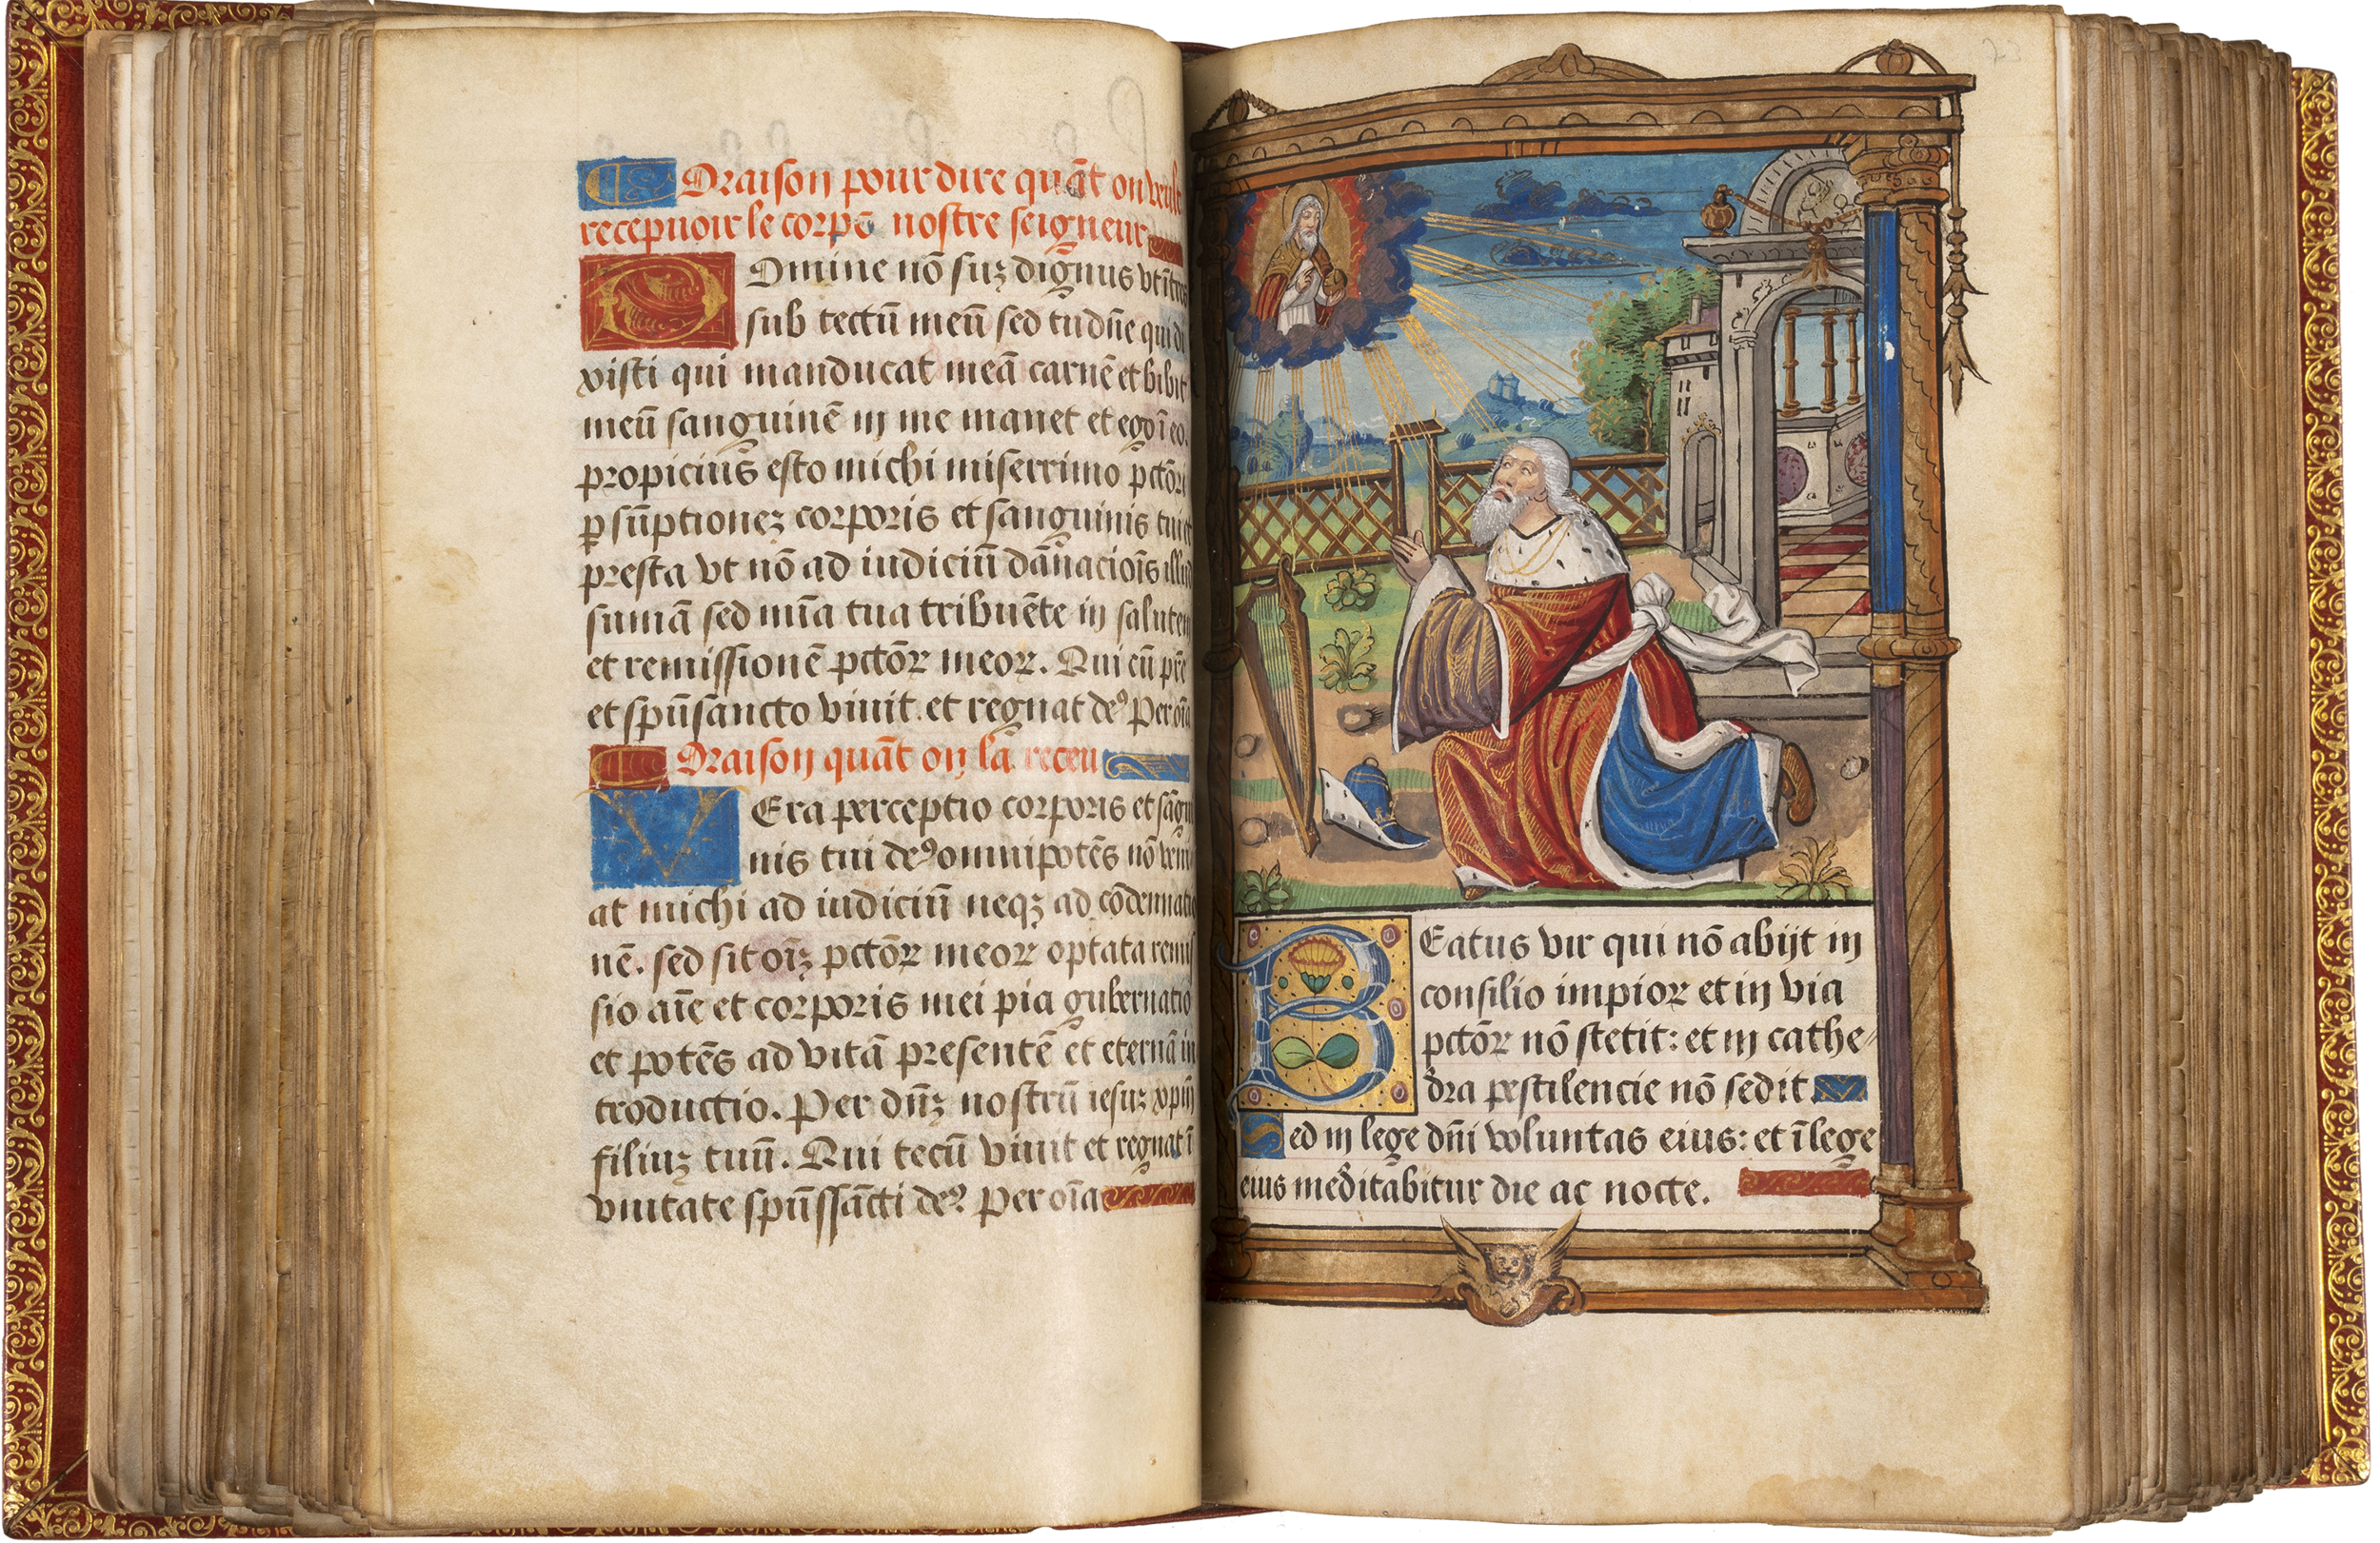 Oraison pour dire quāt on veult
recepuoir le corps nostre seigneur
Domine nō suꝫ dignus vt ītres
sub tectū meū sed tu dn̄e qui di
xisti qui manducat meā carnē et bibit
meū sanguinē in me manet et ego ī eo.
propicius esto michi miserrimo pctōri
ꝑ sūptioneꝫ corporis et sanguinis tui et
presta vt nō ad iudiciū dānacioīs illud
sumā sed mīa tua tribuēte in salutem
et remissionē pctōꝝ meoꝝ. Qui cū pr̄e
et spū sancto viuit et regnat deꝰ Per oīa
Oraison quāt on la receu
VEra perceptio corporis et sāgui
nis tui deꝰ omnipotēs nō veni
at michi ad iudiciū neqꝫ ad cōdemnatio
nē. sed sit oīꝫ pctōꝝ meoꝝ optata remis
sio aīe et corporis mei pia gubernatio
et potēs ad vitā presentē et eternā in
troductio. Per dn̄ꝫ nostrū iesuꝫ xpm̄
filiuꝫ tuū. Qui tecū viuit et regnat ī
vnitate spūssācti deꝰ Per oīa
23
BEatus vir qui nō abijt in
consilio impioꝝ et in via
pctōꝝ nō stetit: et in cathe⸗
dra pestilencie nō sedit.
Sed in lege dn̄i voluntas eius: et ī lege
eius meditabitur die ac nocte.